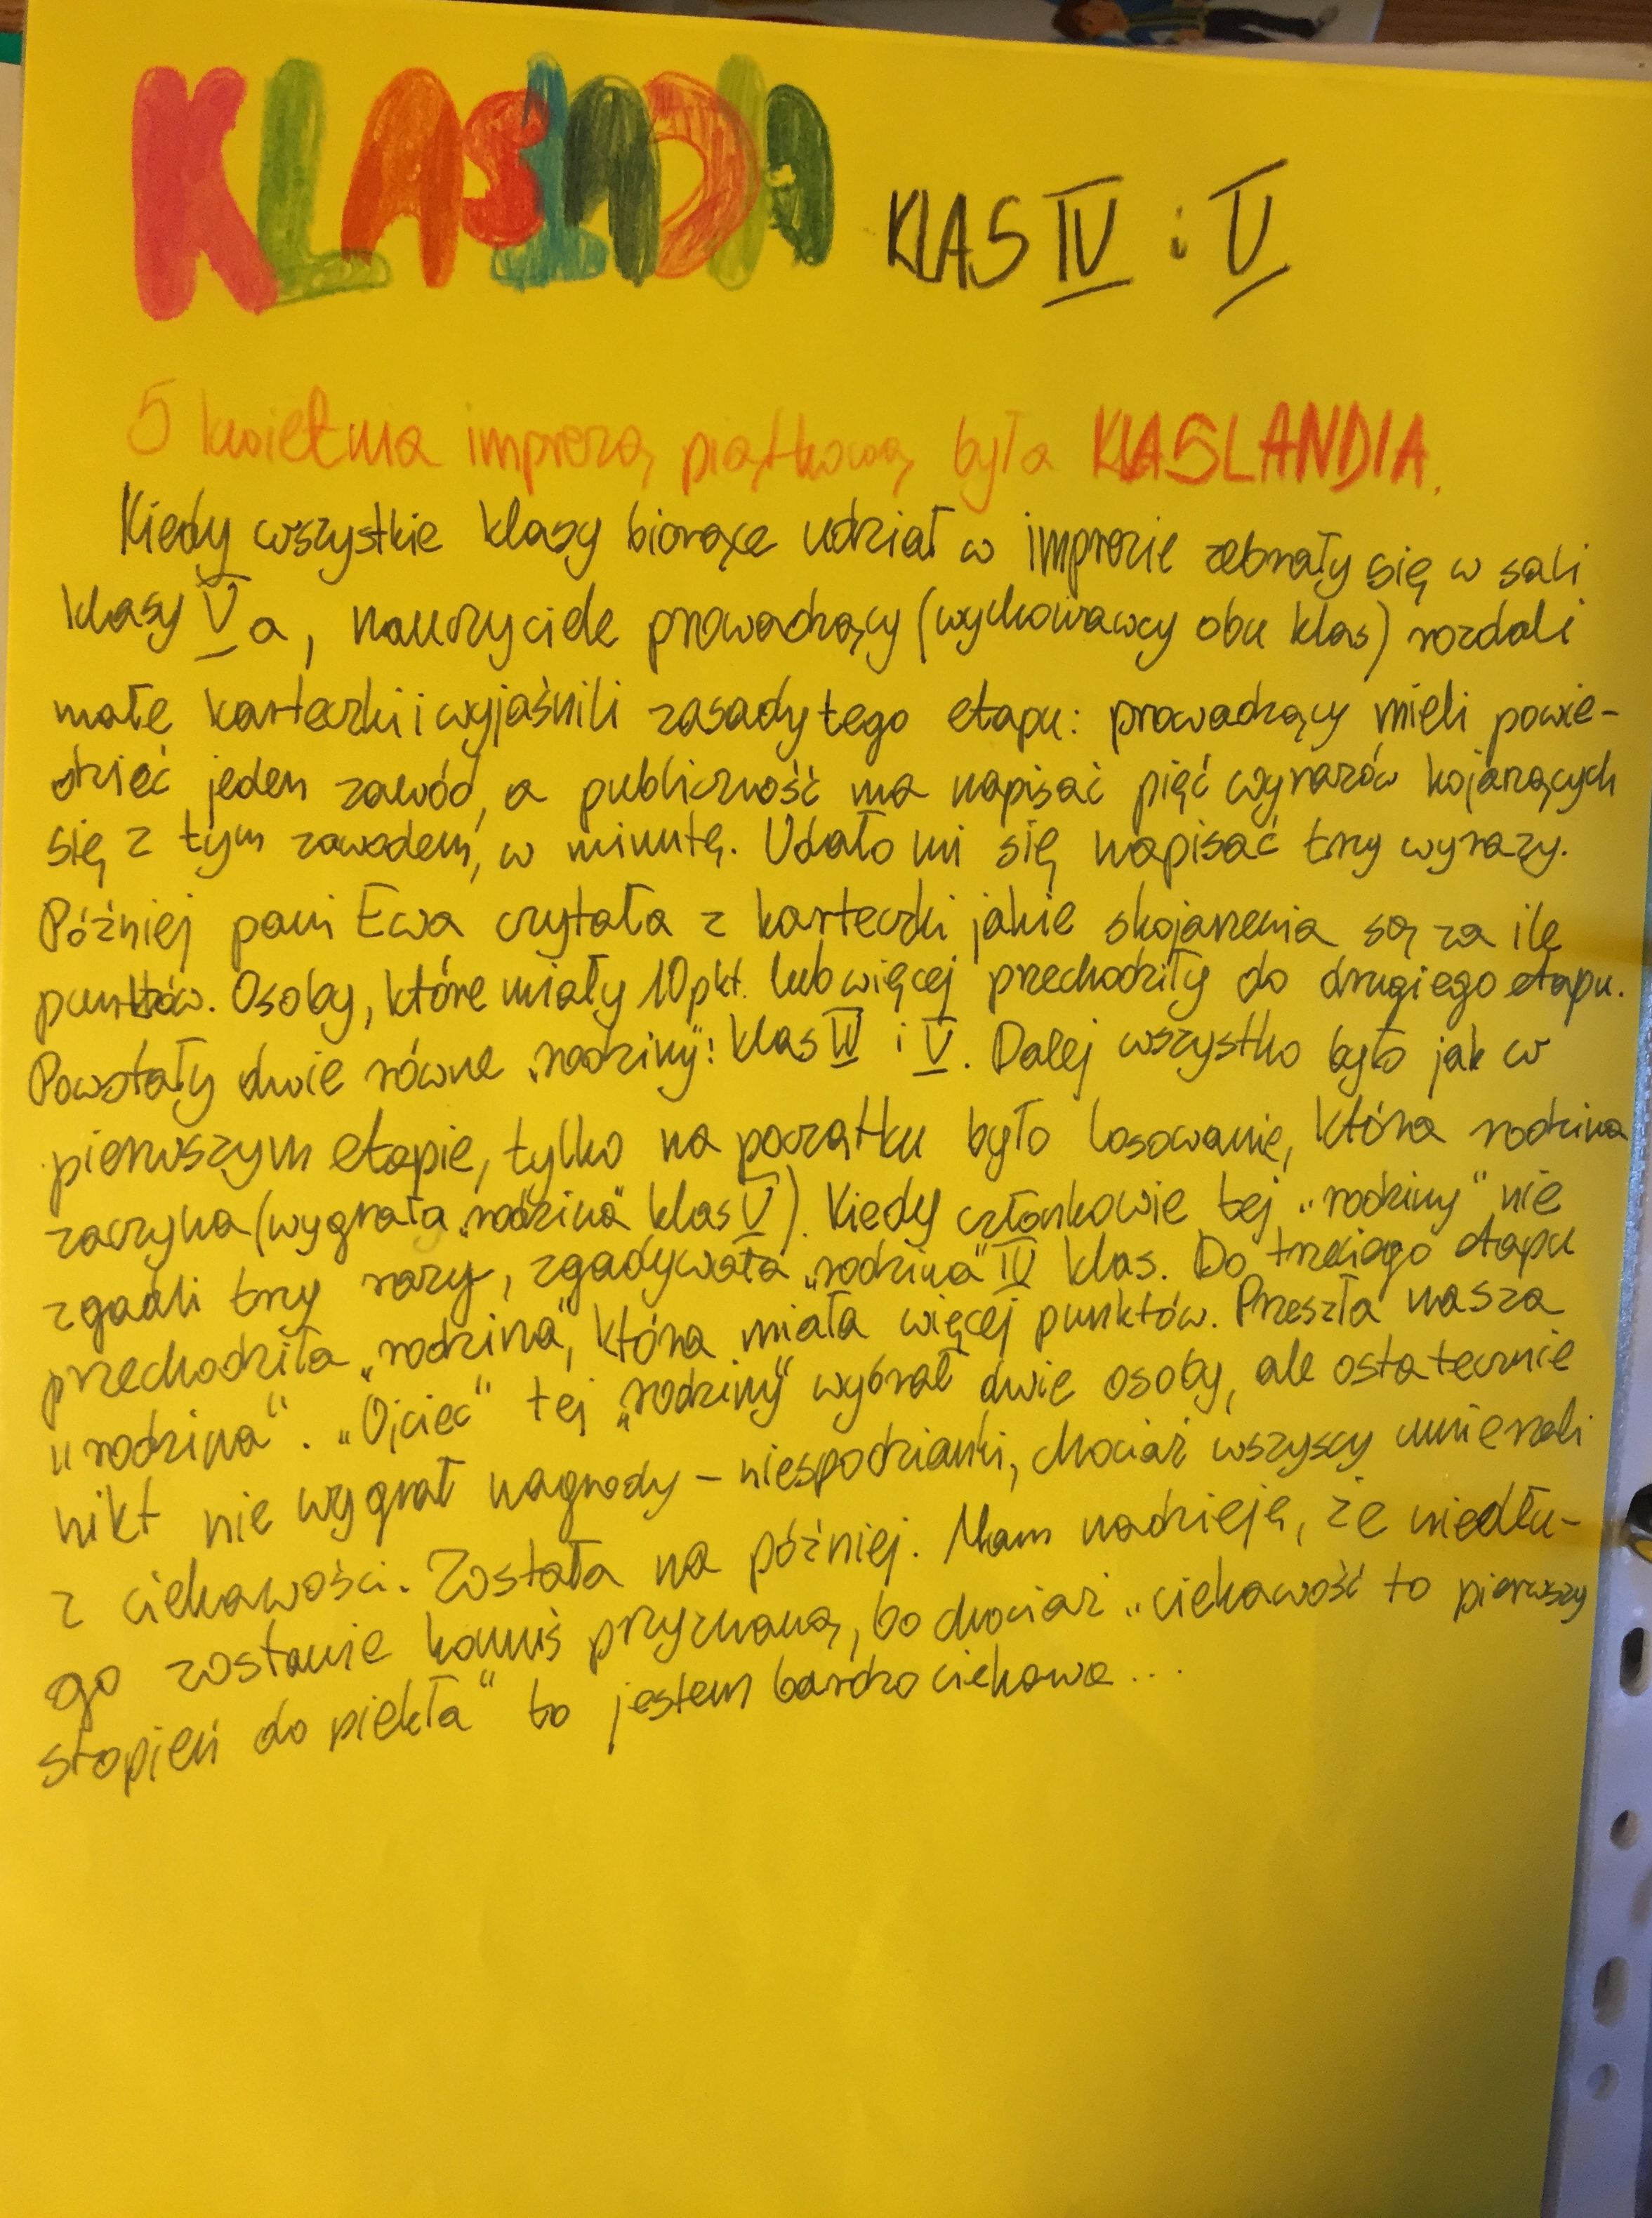 KLASLANDIA KLAS IV i V
5 kwietnia imprezą piątkową była KLASLANDIA.
Kiedy wszystkie klasy biorące udział w imprezie zebrały się w sali
klasy V a, nauczyciele prowadzący (wychowawcy obu klas) rozdali
małe karteczki i wyjaśnili zasady tego etapu: prowadzący mieli powie-
dzieć jeden zawód, a publiczność ma napisać pięć wyrazów kojarzących
się z tym zawodem, w minutę. Udało mi się napisać trzy wyrazy.
Później pani Ewa czytała z karteczki jakie skojarzenia są za ile
punktów. Osoby, które miały 10 pkt. lub więcej przechodziły do drugiego etapu.
Powstały dwie równe „rodziny": klas IV i V. Dalej wszystko było jak w
pierwszym etapie, tylko na początku było losowanie, która rodzina
zaczyna (wygrała „rodzina" klas V). Kiedy członkowie tej „rodziny" nie
zgadli trzy razy, zgadywała „rodzina" IV klas. Do trzeciego etapu
przechodziła „rodzina", która miała więcej punktów. Przeszła nasza
„rodzina". „Ojciec" tej „rodziny" wybrał dwie osoby, ale ostatecznie
nikt nie wygrał nagrody - niespodzianki, chociaż wszyscy umierali
z ciekawości. Została na później. Mam nadzieję, że niedłu-
go zostanie komuś przyznaną, bo chociaż „ciekawość to pierwszy
stopień do piekła" to jestem bardzo ciekawa...